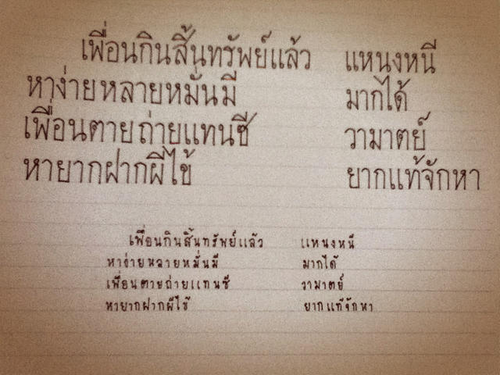 เพื่อนกินสิ้นทรัพย์แล้ว แหนงหนี
หาง่ายหลายหมื่นมี มากได้
เพื่อนตายถ่ายแทนชี วามาตย์
หายากฝากผีไข้ ยากแท้จักหา
เพื่อนกินสิ้นทรัพย์แล้ว แหนงหนี
หาง่ายหลายหมื่นมี มากได้
เพื่อนตายถ่ายแทนชี วามาตย์
หายากฝากผีไข้ ยากแท้จักหา